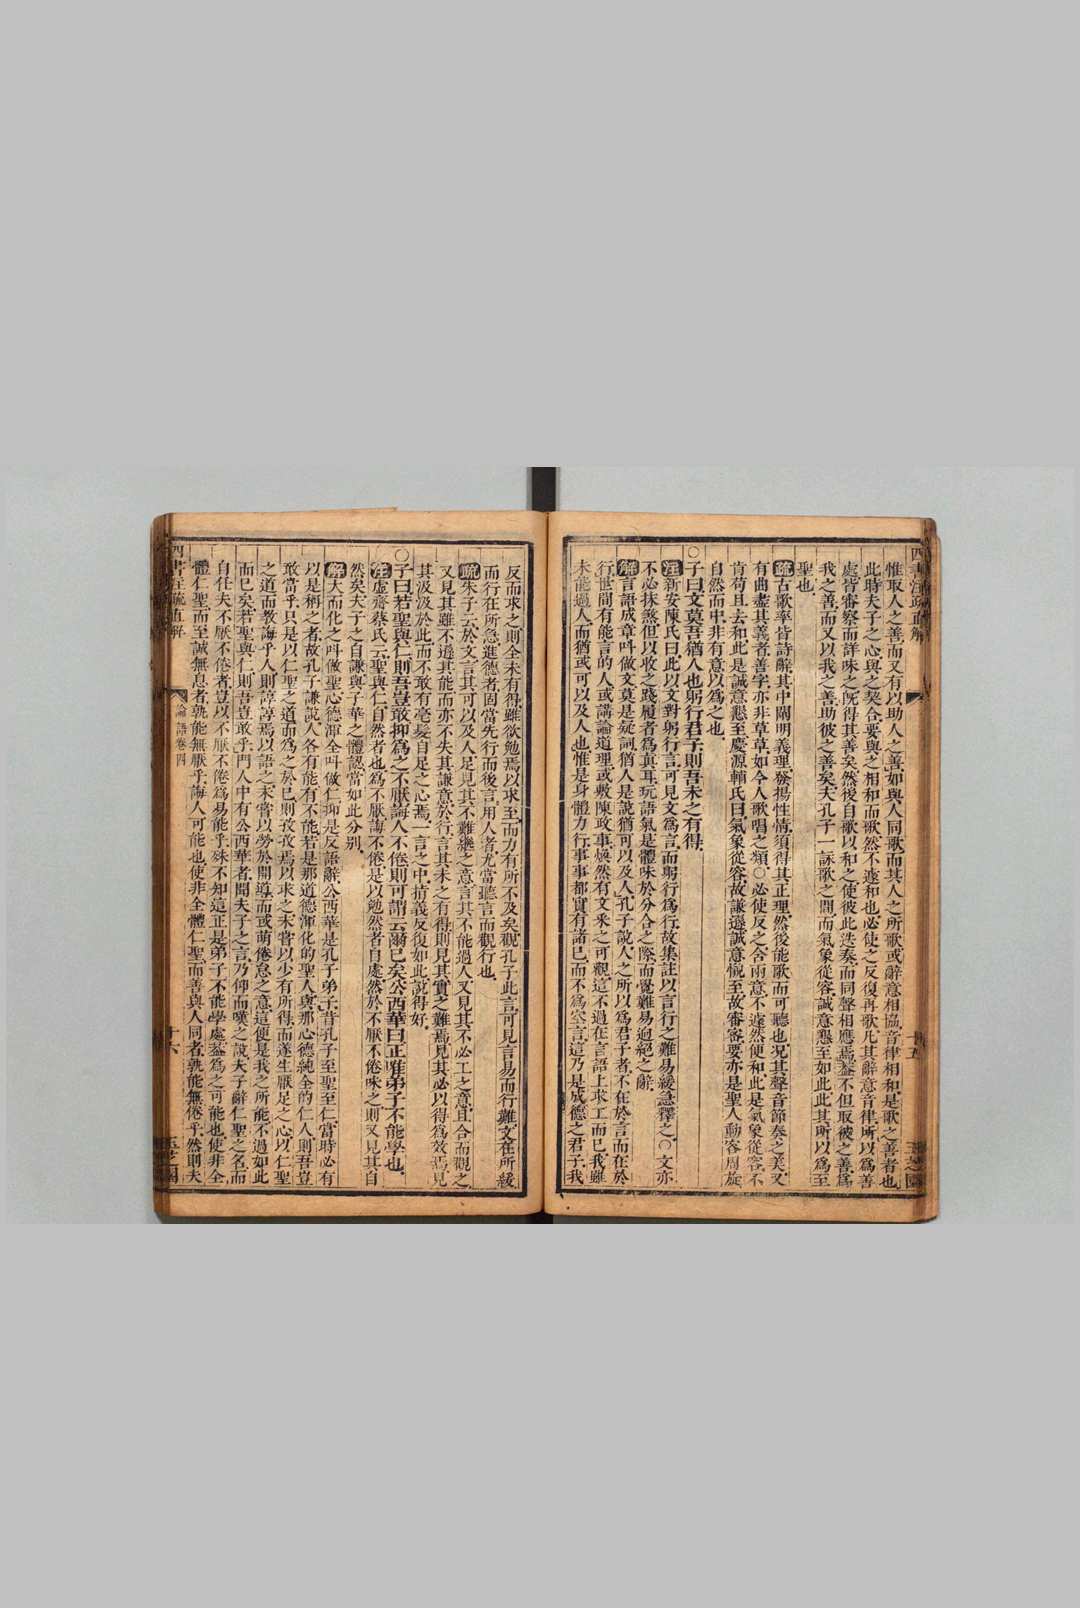 惟取人之善而又有以助人之善如與人同歌而其人之所歌或辭意相協音律相和是歌之善者也
此時夫子之心與之契合要與之相和而歌然不遽和也必使之反復再歌凡其辭意音律所以為善
處皆審察而詳味之既得其善矣然後自歌以和之使彼此迭奏而同聲相應焉蓋不但取彼之善為
我之善而又以我之善助彼之善矣夫孔子一詠歌之間而氣象從容誠意懇至如此此其所以為至
聖也
疏古歌率皆詩辭其中闡明義理發揚性情須得其正理然後能歌而可聽也况其聲音節奏之美又
有曲盡其義者善字亦非草草如今人歌唱之類○必使反之含兩意不遽然便和此是氣象從容不
肯苟且去和此是誠意懇至慶源輔氏曰氣象從容故謙遜誠意悅至故審審要亦是聖人動容周旋
自然而中非有意以為之也
○子曰文莫吾猶人也躬行君子則吾未之有得
注新安陳氏曰此以文對躬行言可見文為言而躬行為行故集註以言行之難易緩急釋之○文亦
不必抹煞但以收之踐履者為真耳玩語氣是體味於分合之際而覺難易迥絕之辭
解言語成章叫做文莫是疑詞猶人是說猶可以及人孔子說人之所以為君子者不在於言而在於
行世間有能言的人或講論道理或敷陳政事煥然有文釆之可觀這不過在言語上求工而已我雖
未能過人而猶或可以及人也惟是身體力行事事都實有諸已而不為空言這乃是成德之君子我
反而求之則全未有得雖欲勉焉以求至而力有所不及矣觀孔子此言可見言易而行難文在所緩
而行在所急進德者固當先行而後言用人者尤當聽言而觀行也
疏朱子云於文言其可以及人足見其不難繼之意言其不能過人又見其不必工之意且合而觀之
又見其雖不遜其能而亦不失其謙意於行言其未之有得則見其實之難焉見其必以得為效焉見
其汲汲於此而不敢有毫髮自足之心焉一言之中指義反復如此說得好
○子曰若聖與仁則吾豈敢抑為之不厭誨人不倦則可謂云爾已矣公西華曰正唯弟子不能學也
注虛齋蔡氏云聖與仁自然者也為不厭誨不倦是以勉然者自處然於不厭不倦味之則又見其自
然矣夫子之自謙與子華之體認當如此分別
解大而化之叫做聖心德渾全叫做仁抑是反語辭公西華是孔子弟子昔孔子至聖至仁當時必有
以是稱之者故孔子謙說人各有能有不能若是那道德渾化的聖人與那心德純全的仁人則吾豈
敢當乎只是以仁聖之道而為之於已則孜孜焉以求之未嘗以少有所得而遂生厭足之心以仁聖
之道而教誨乎人則諄諄焉以語之未嘗以勞於開導而或萌倦怠之意這便是我之所能不過如此
而已矣若聖與仁則吾豈敢乎門人中有公西華者聞夫子之言乃仰而嘆之說夫子辭仁聖之名而
自任夫不厭不倦者豈以不厭不倦為易能乎殊不知這正是弟子不能學處葢為之可能也使非全
體仁聖而至誠無息者孰能無厭乎誨人可能也使非全體仁聖而善與人同者孰能無倦乎然則夫
四書注疏直解
十五
四書注疏直解
論語卷四
十六